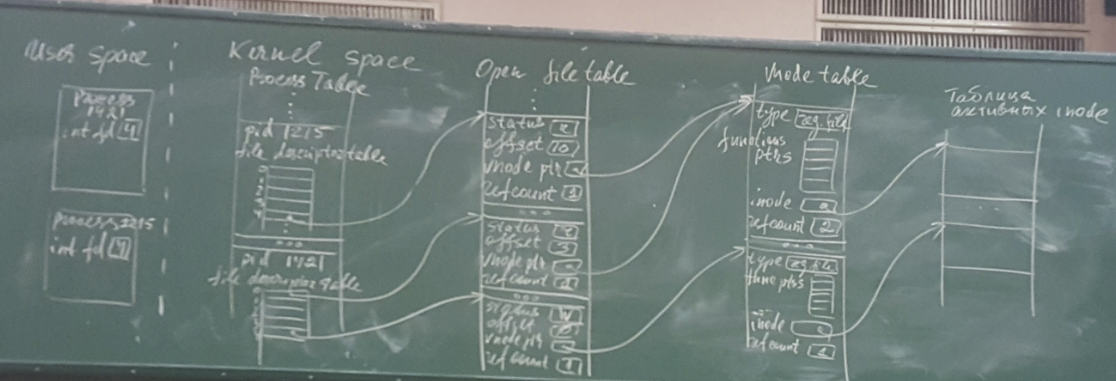 User space
Process
1421
int fd 4
Process 1215
int fd 4
Kernel space
Process Table
pid 1215
file descriptor table
0
1
2
3
4
pid 1421
file descriptor table
Open file table
status r
offset 10
vnode ptr
refcount 1
status r
offset 3
vnode ptr
refcount 1
status w
offset 0
vnode ptr
refcount 1
Vnode table
type reg. file
functions
ptrs
inode
refcount 2
type reg. file
func ptrs
inode
refcount 1
Таблица
активных inode